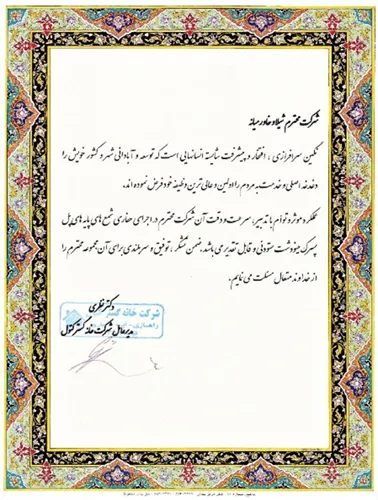 شرکت محترم شیلاد خاورمیانه
نگین سرافرازی ، افتخار و پیشرفت شایسته انسانهایی است که توسعه و آبادانی شهر و کشور خویش را
دغدغه اصلی و خدمت به مردم را اولین و عالی ترین وظیفه خود فرض نموده اند.
عملکرد موثر و توأم با تدبیر، سرعت و دقت آن شرکت محترم در اجرای حفاری شمع های پایه های پل
پسرک مینودشت ستودنی و قابل تقدیر می باشد. ضمن تشکر ، توفیق و سربلندی برای آن مجموعه محترم را
از خداوند متعال مسئلت می نمایم.
شرکت خانه گستر
دکتر نظری
مدیرعامل شرکت خانه گستر کتول